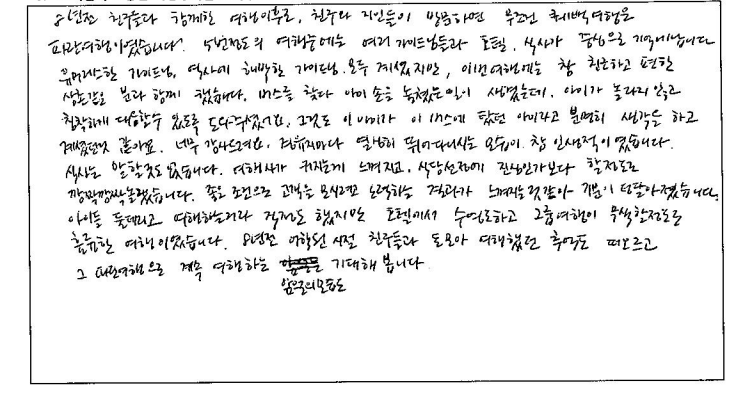 8년전 친구들과 함께한 여행이후로, 친구와 지인들이 방문하면 무조건 퀘벡여행은
파란여행이었습니다. 5번정도의 여행중에는 여러 가이드님들과 호텔, 식사가 중심으로 기억에남습니다
유머러스한 가이드님, 역사에 해박한 가이드님 모두 계셨지만, 이번여행에는 참 친근하고 편한
삼촌같은 분과 함께 했습니다. 버스를 찾다 아이 손을 놓쳤는일이 생겼는데, 아이가 놀라지 않고
침착하게 대응할수 있도록 도와주셨어요. 그것도 이 아이가 이 버스에 탔던 아이라고 분명히 생각을 하고
계셨던것 같아요. 너무 감사드려요. 관광지마다 열심히 뛰어다니시는 모습이 참 인상적이었습니다.
식사는 말할것도 없습니다. 여행사가 커지는게 느껴지고, 식당선정에 진심인가보다 할정도로
깜짝깜짝놀랬습니다. 좋은 조건으로 고객을 모시려고 노력하는 결과가 느껴지는것같아 기분이 더 좋아졌습니다.
아이들 둘데리고 여행하는거라 걱정도 했지만 호텔에서 수영도하고 그룹여행이 무색할정도로
훌륭한 여행이었습니다. 8년전 어학연수시절 친구들과 돈모아 여행했던 추억도 떠오르고
그 파란여행으로 계속 여행하는 기대해 봅니다.
앞으로의모습도